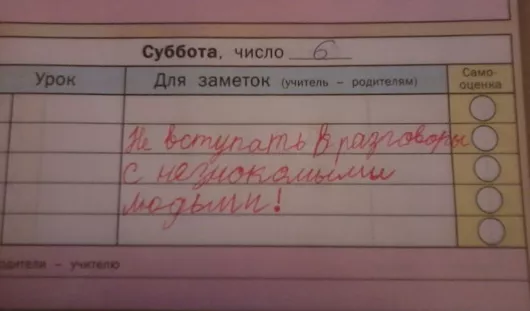 Суббота, число 6
Урок
Для заметок (учитель – родителям)
Само-
оценка
Не вступать в разговоры
с незнокомыми
людьми!
родители – учителю